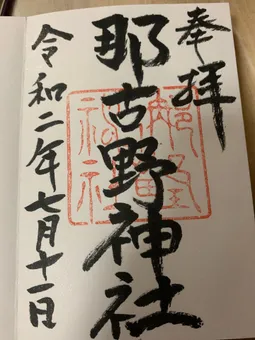 奉拝
那古野神社
令和二年七月十一日